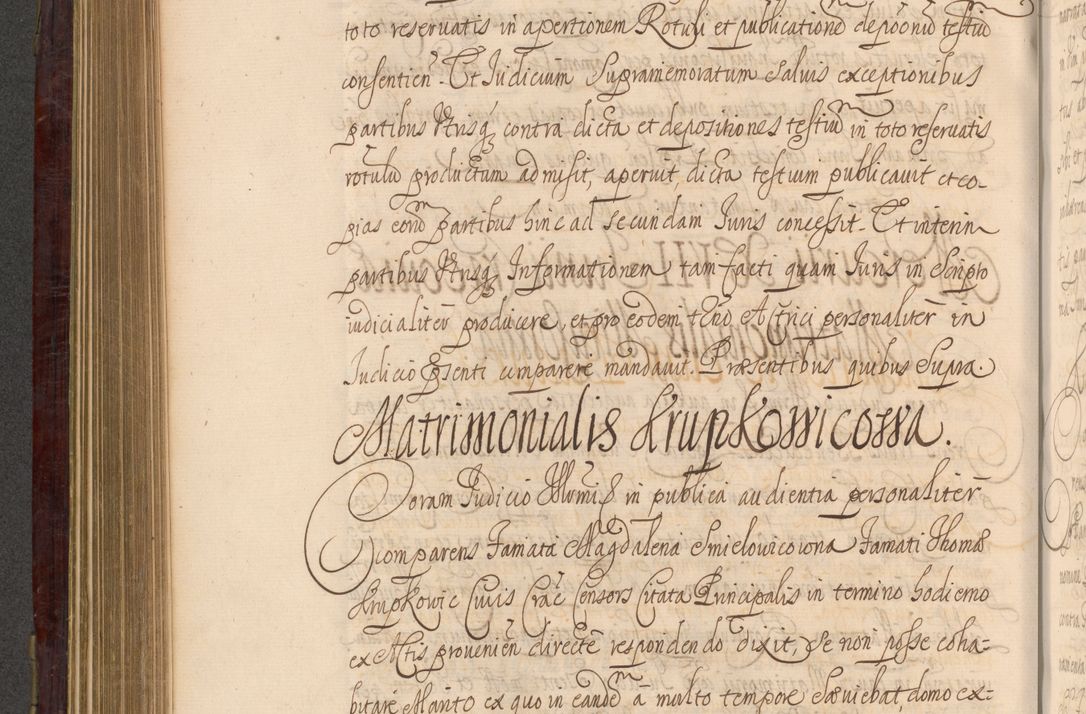 toto reservatis in apertionem Rotuli et publicatione depoõnũ testiũ
consentieñ. Et Iudicium Supramemoratum salvis exceptionibus
partibus Utrisq contra dicta et depositiones testiũ in toto reservatis
rotulũ productum admisit, aperuit, dicta testium publicavit et co-
pias eorũ partibus hinc ad secundam Iuris concessit. Et interim
partibus Utrisq Informationem tam facti quam Iuris in Scripto
iudicialiter producere, et pro eodem Actrici personaliter in
Iudicio comparere mandavit. Præsentibus quibus Supra.
Matrimonialis Krupkowicowa.
Coram Iudicio in publica audientia personaliter
comparens Famata Magdalena Smielowicowna Famati Thomæ
Krupkowic Civis Crac Consors Citata Principalis in termino hodierno
ex Actis provenieñ directe respondendo dixit, Se non posse coha-
bitare Marito ex quo in eandẽ a multo tempore sæviebat, domo ex-